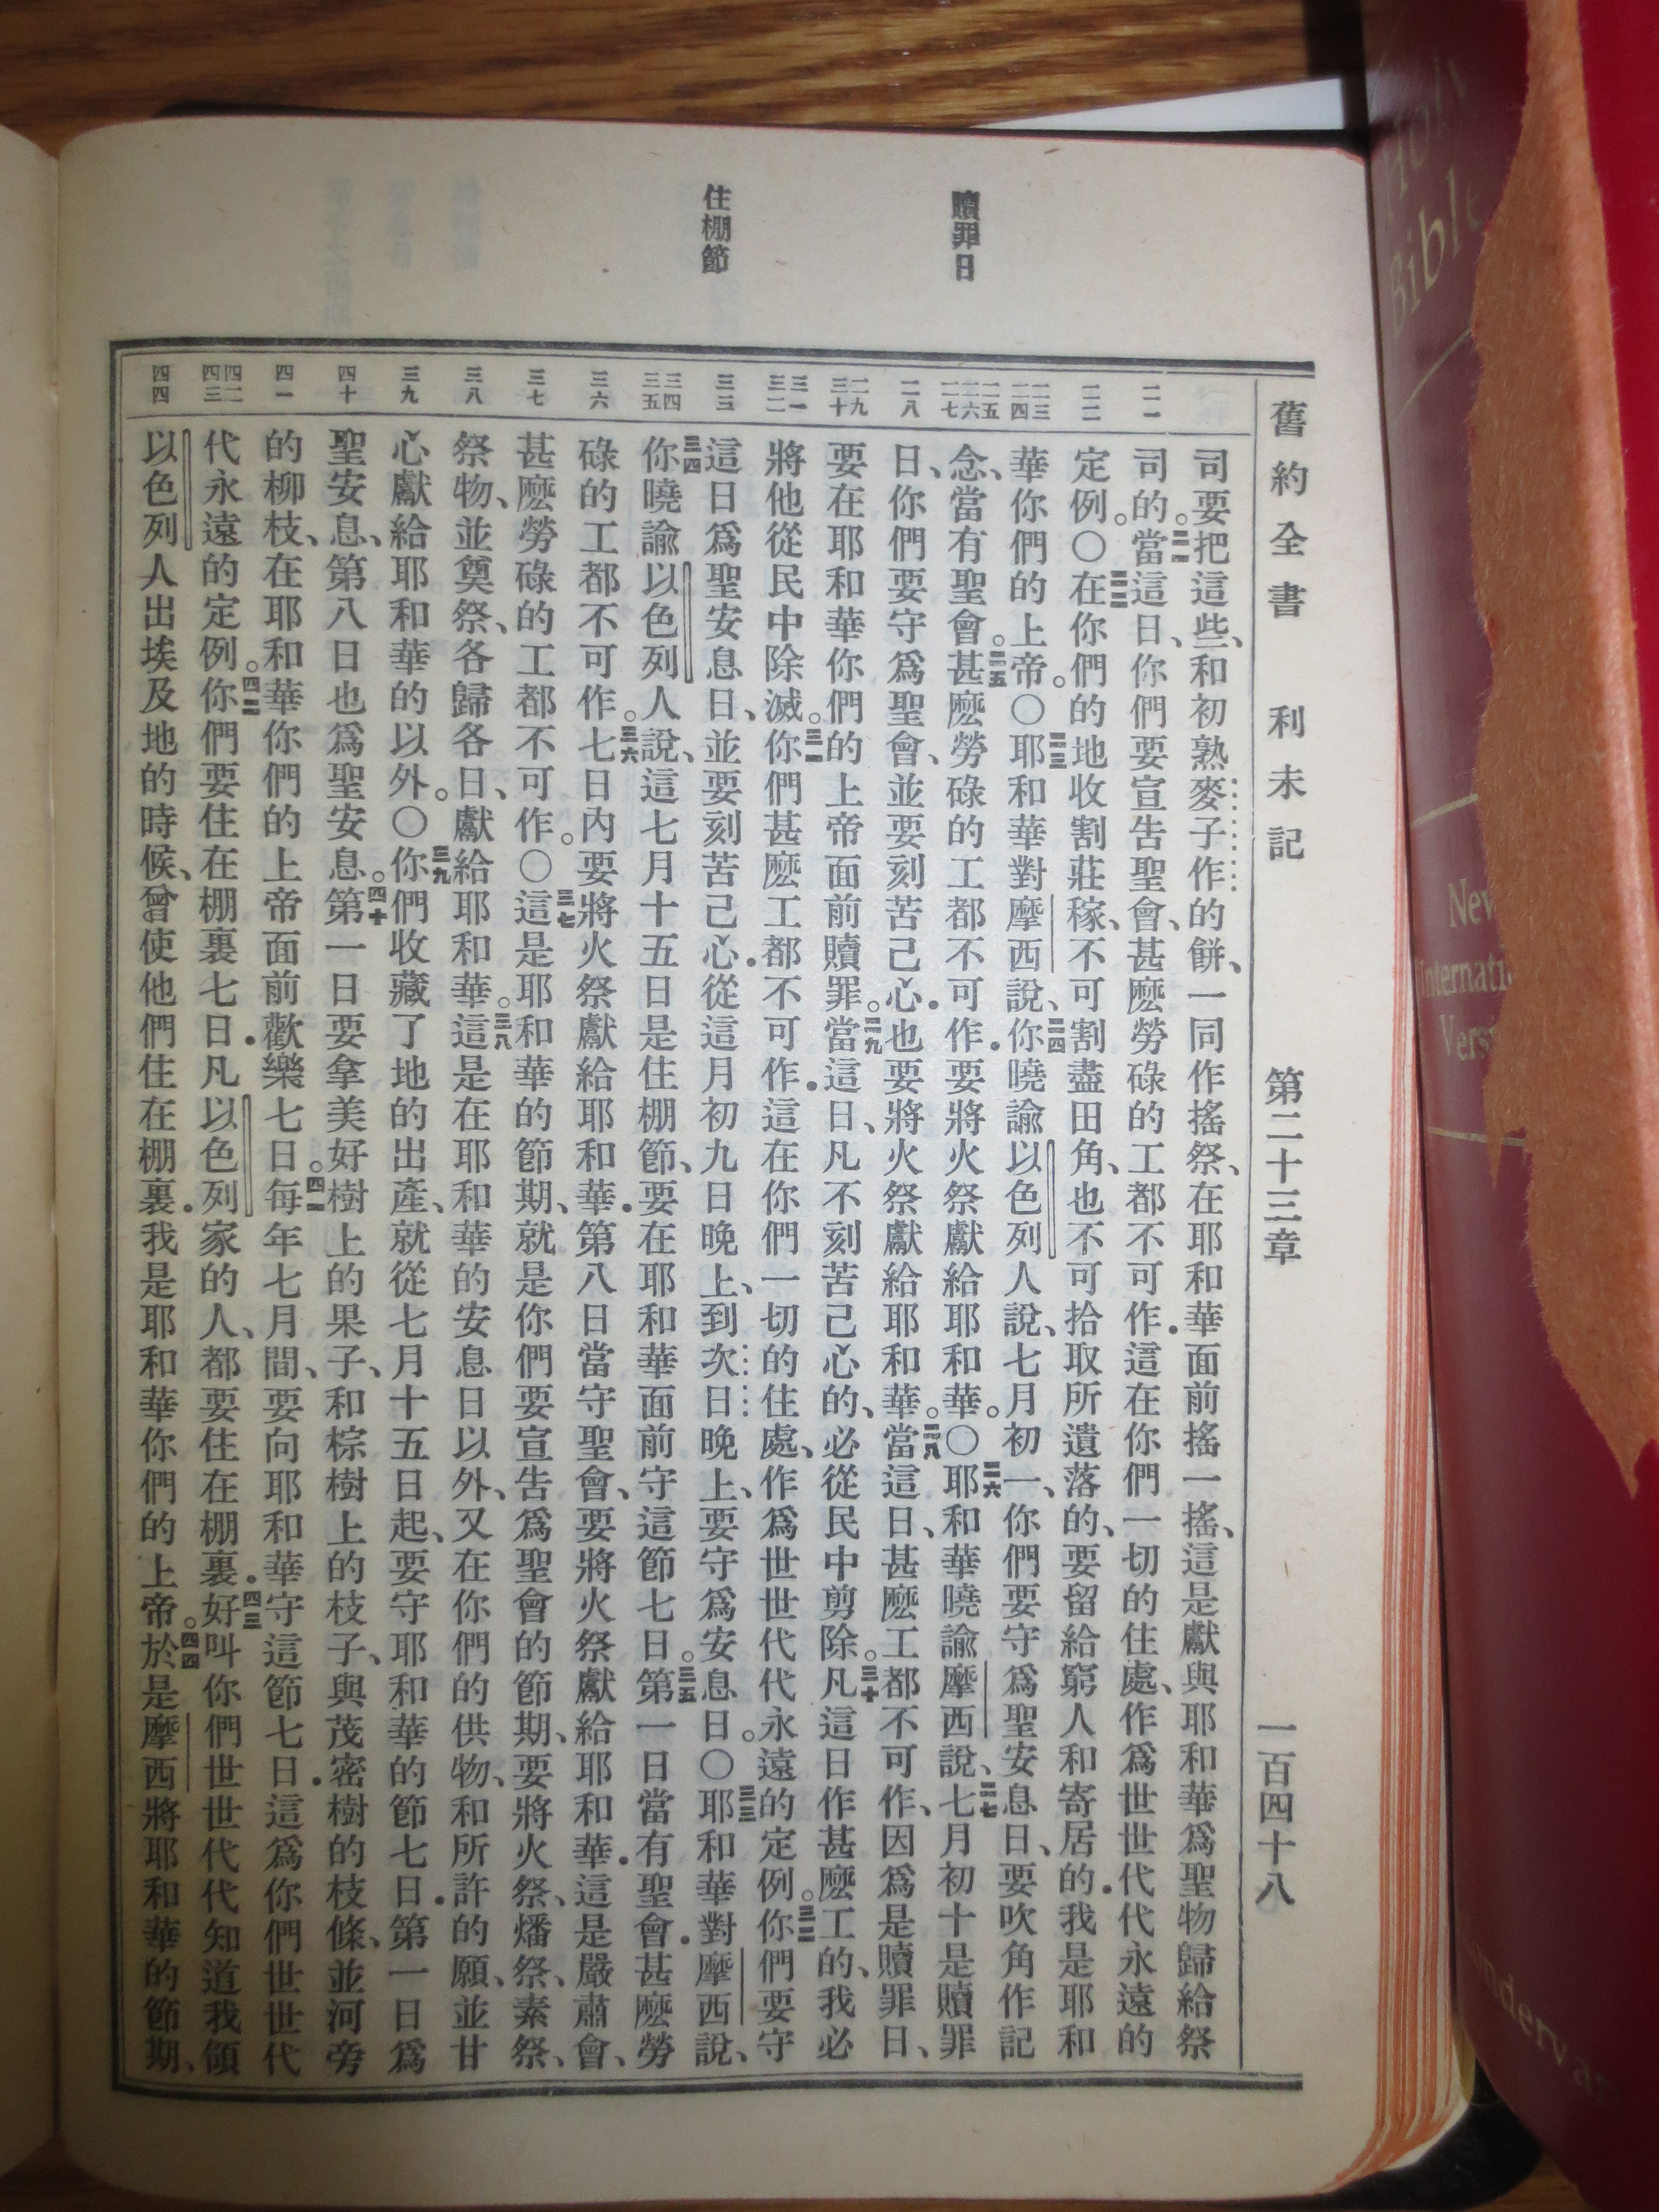 舊約全書 利未記 第二十三章 一百四十八
贖罪日
住棚節
二一
二二
二三
二四
二五
二六
二七
二八
二九
三十
三一
三二
三三
三四
三五
三六
三七
三八
三九
四十
四一
四二
四三
四四
司要把這些、和初熟麥子作的餅、一同作搖祭、在耶和華面前搖一搖、這是獻與耶和華爲聖物歸給祭
司的。二一當這日、你們要宣告聖會、甚麽勞碌的工都不可作．這在你們一切的住處、作爲世世代代永遠的
定例。〇二二在你們的地收割莊稼、不可割盡田角、也不可拾取所遺落的、要留給窮人和寄居的．我是耶和
華你們的上帝。〇二三耶和華對摩西說、二四你曉諭以色列人說、七月初一、你們要守爲聖安息日、要吹角作記
念、當有聖會。二五甚麽勞碌的工都不可作．要將火祭獻給耶和華。〇二六耶和華曉諭摩西說、二七七月初十是贖罪
日、你們要守爲聖會、並要刻苦己心．也要將火祭獻給耶和華。二八當這日、甚麽工都不可作、因爲是贖罪日、
要在耶和華你們的上帝面前贖罪。二九當這日、凡不刻苦己心的、必從民中剪除。三十凡這日作甚麽工的、我必
將他從民中除滅。三一你們甚麽工都不可作．這在你們一切的住處、作爲世世代代永遠的定例。三二你們要守
這日爲聖安息日、並要刻苦己心．從這月初九日晚上、到次日晚上、要守爲安息日。〇三三耶和華對摩西說、
三四你曉諭以色列人說、這七月十五日是住棚節、要在耶和華面前守這節七日。三五第一日當有聖會．甚麽勞
碌的工都不可作。三六七日內要將火祭獻給耶和華．第八日當守聖會、要將火祭獻給耶和華．這是嚴肅會、
甚麽勞碌的工都不可作。〇三七這是耶和華的節期、就是你們要宣告爲聖會的節期、要將火祭、燔祭、素祭、
祭物、並奠祭、各歸各日、獻給耶和華。三八這是在耶和華的安息日以外、又在你們的供物、和所許的願、並甘
心獻給耶和華的以外。〇三九你們收藏了地的出產、就從七月十五日起、要守耶和華的節七日．第一日爲
聖安息、第八日也爲聖安息。四十第一日要拿美好樹上的果子、和棕樹上的枝子、與茂密樹的枝條、並河旁
的柳枝、在耶和華你們的上帝面前歡樂七日。四一每年七月間、要向耶和華守這節七日．這爲你們世世代
代永遠的定例。四二你們要住在棚裏七日．凡以色列家的人、都要住在棚裏．四三好叫你們世世代代知道我領
以色列人出埃及地的時候、曾使他們住在棚裏．我是耶和華你們的上帝。四四於是摩西將耶和華的節期、
Holy
Bible
New
Version